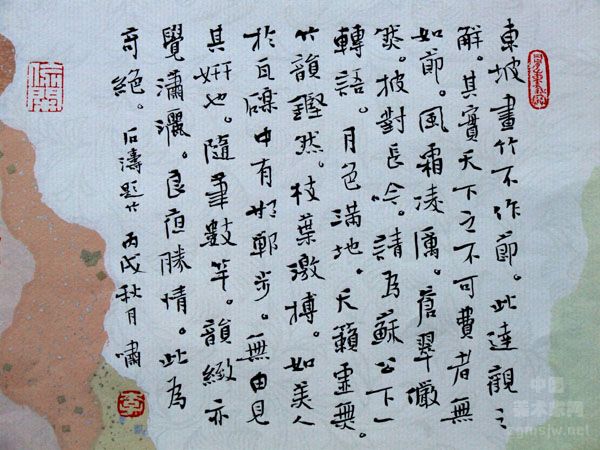 東坡畫竹不作節。此達觀之
解。其實天下之不可費者無
如節。風霜凌厲。蒼翠儼
然。披對長吟。請為蘇公下一
轉語。月色滿地。天籟靈
竹韻鏗然。枝葉激搏。如美人
於瓦礫中有邯鄲步。無由見
其妍也。隨筆數竿。韻緻亦
覺瀟灑。良夜勝情。此為
奇絕。石濤題竹 丙戌秋月 嘯
李